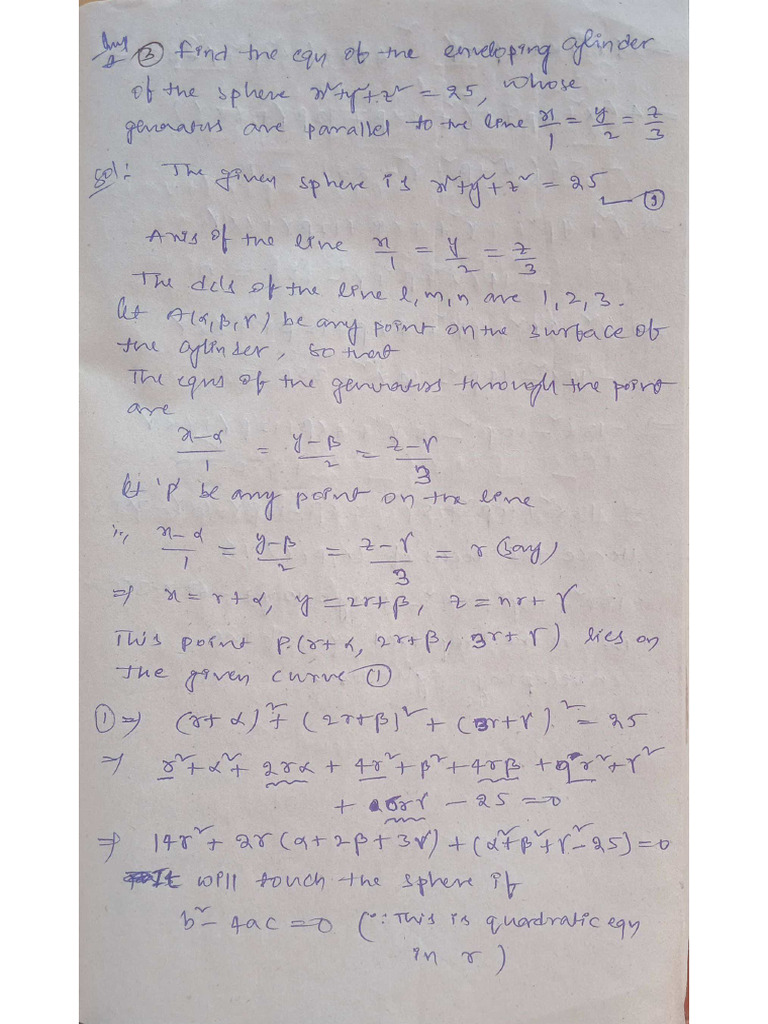 ③ Find the eqn of the enveloping cylinder
of the sphere x²+y²+z² = 25, whose
generators are parallel to the line x/1 = y/2 = z/3
Sol: The given sphere is x²+y²+z² = 25 — ①
Axis of the line x/1 = y/2 = z/3
The dcls of the line l, m, n are 1, 2, 3.
let A(α, β, γ) be any point on the surface of
the cylinder, so that
The eqns of the generators through the point
are
x-α/1 = y-β/2 = z-γ/3
let 'p' be any point on the line
i.e., x-α/1 = y-β/2 = z-γ/3 = r (say)
⇒ x = r+α, y = 2r+β, z = nr+γ
This point P(r+α, 2r+β, 3r+γ) lies on
the given curve ①
① ⇒ (r+α)² + (2r+β)² + (3r+γ)² = 25
⇒ r²+α²+2rα + 4r²+β²+4rβ + 9r²+γ²
+ 6rγ - 25 = 0
⇒ 14r² + 2r(α+2β+3γ) + (α²+β²+γ²-25) = 0
It will touch the sphere if
b² - 4ac = 0 (∵ This is quadratic eqn
in r)